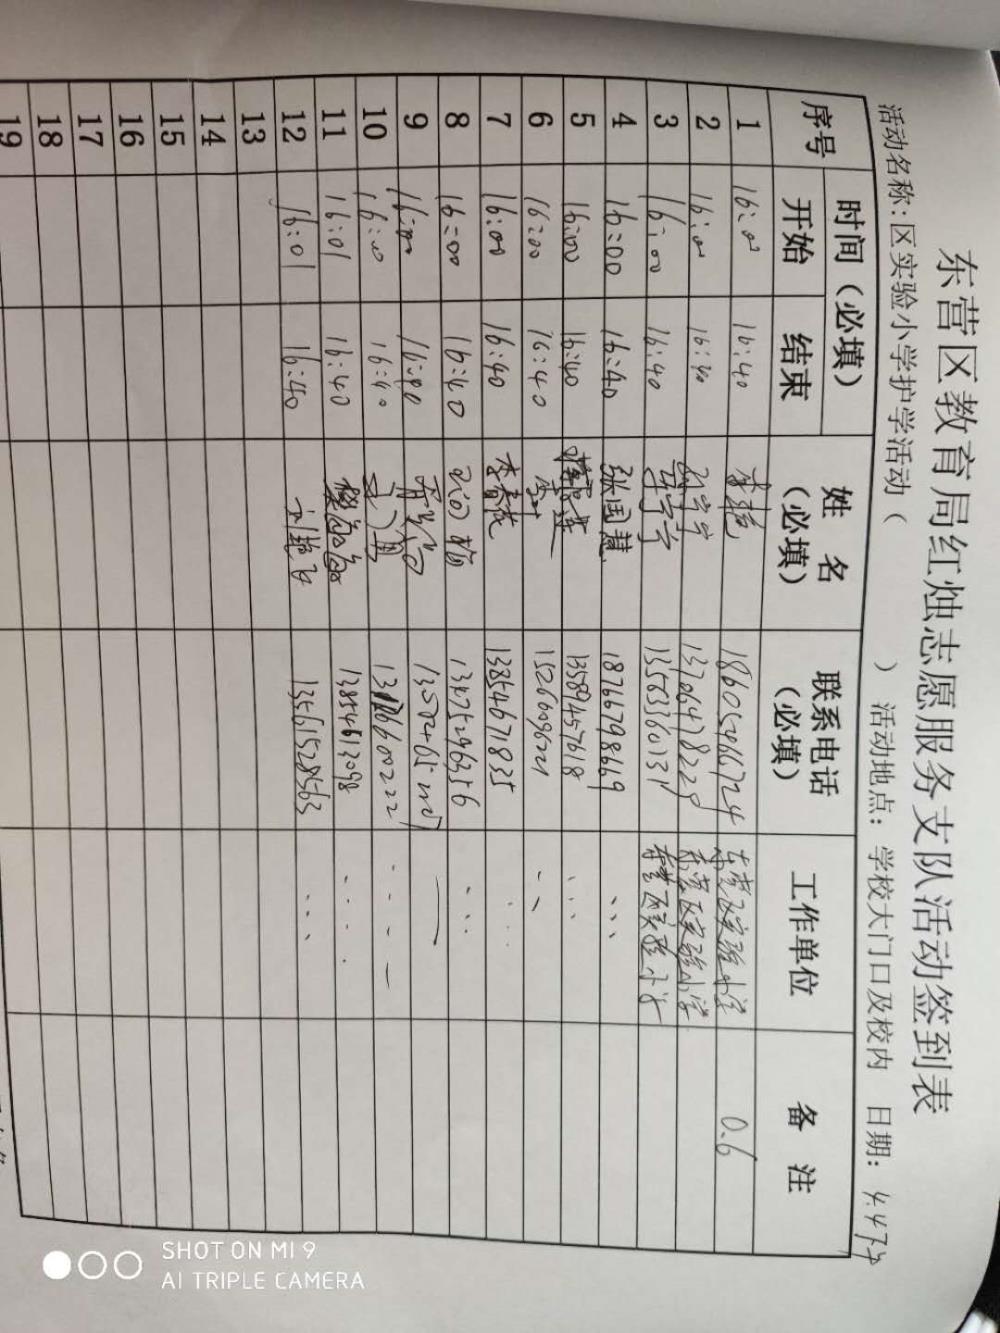 东营区教育局红烛志愿服务支队活动签到表
活动名称：区实验小学护学活动（ ） 活动地点：学校大门口及校内 日期：4.4
序号 时间（必填） 姓名（必填） 联系电话（必填） 工作单位 备注
开始 结束
1 16:00 16:40 李艳 18605466724 东营区实验小学 0.6
2 16:00 16:40 13706478229 东营区实验小学
3 16:00 16:40 13563360131 东营区实验小学
4 16:00 16:40 张国慧 18766798669
5 16:00 16:40 13589457618
6 16:00 16:40 15266096221
7 16:00 16:40 李春花 13854671835
8 16:00 16:40 13475296356
9 16:00 16:40
10 16:00 16:40
11 16:01 16:40 13854613098
12 16:01 16:40 13561528563
13
14
15
16
17
18
19
SHOT ON MI 9
AI TRIPLE CAMERA